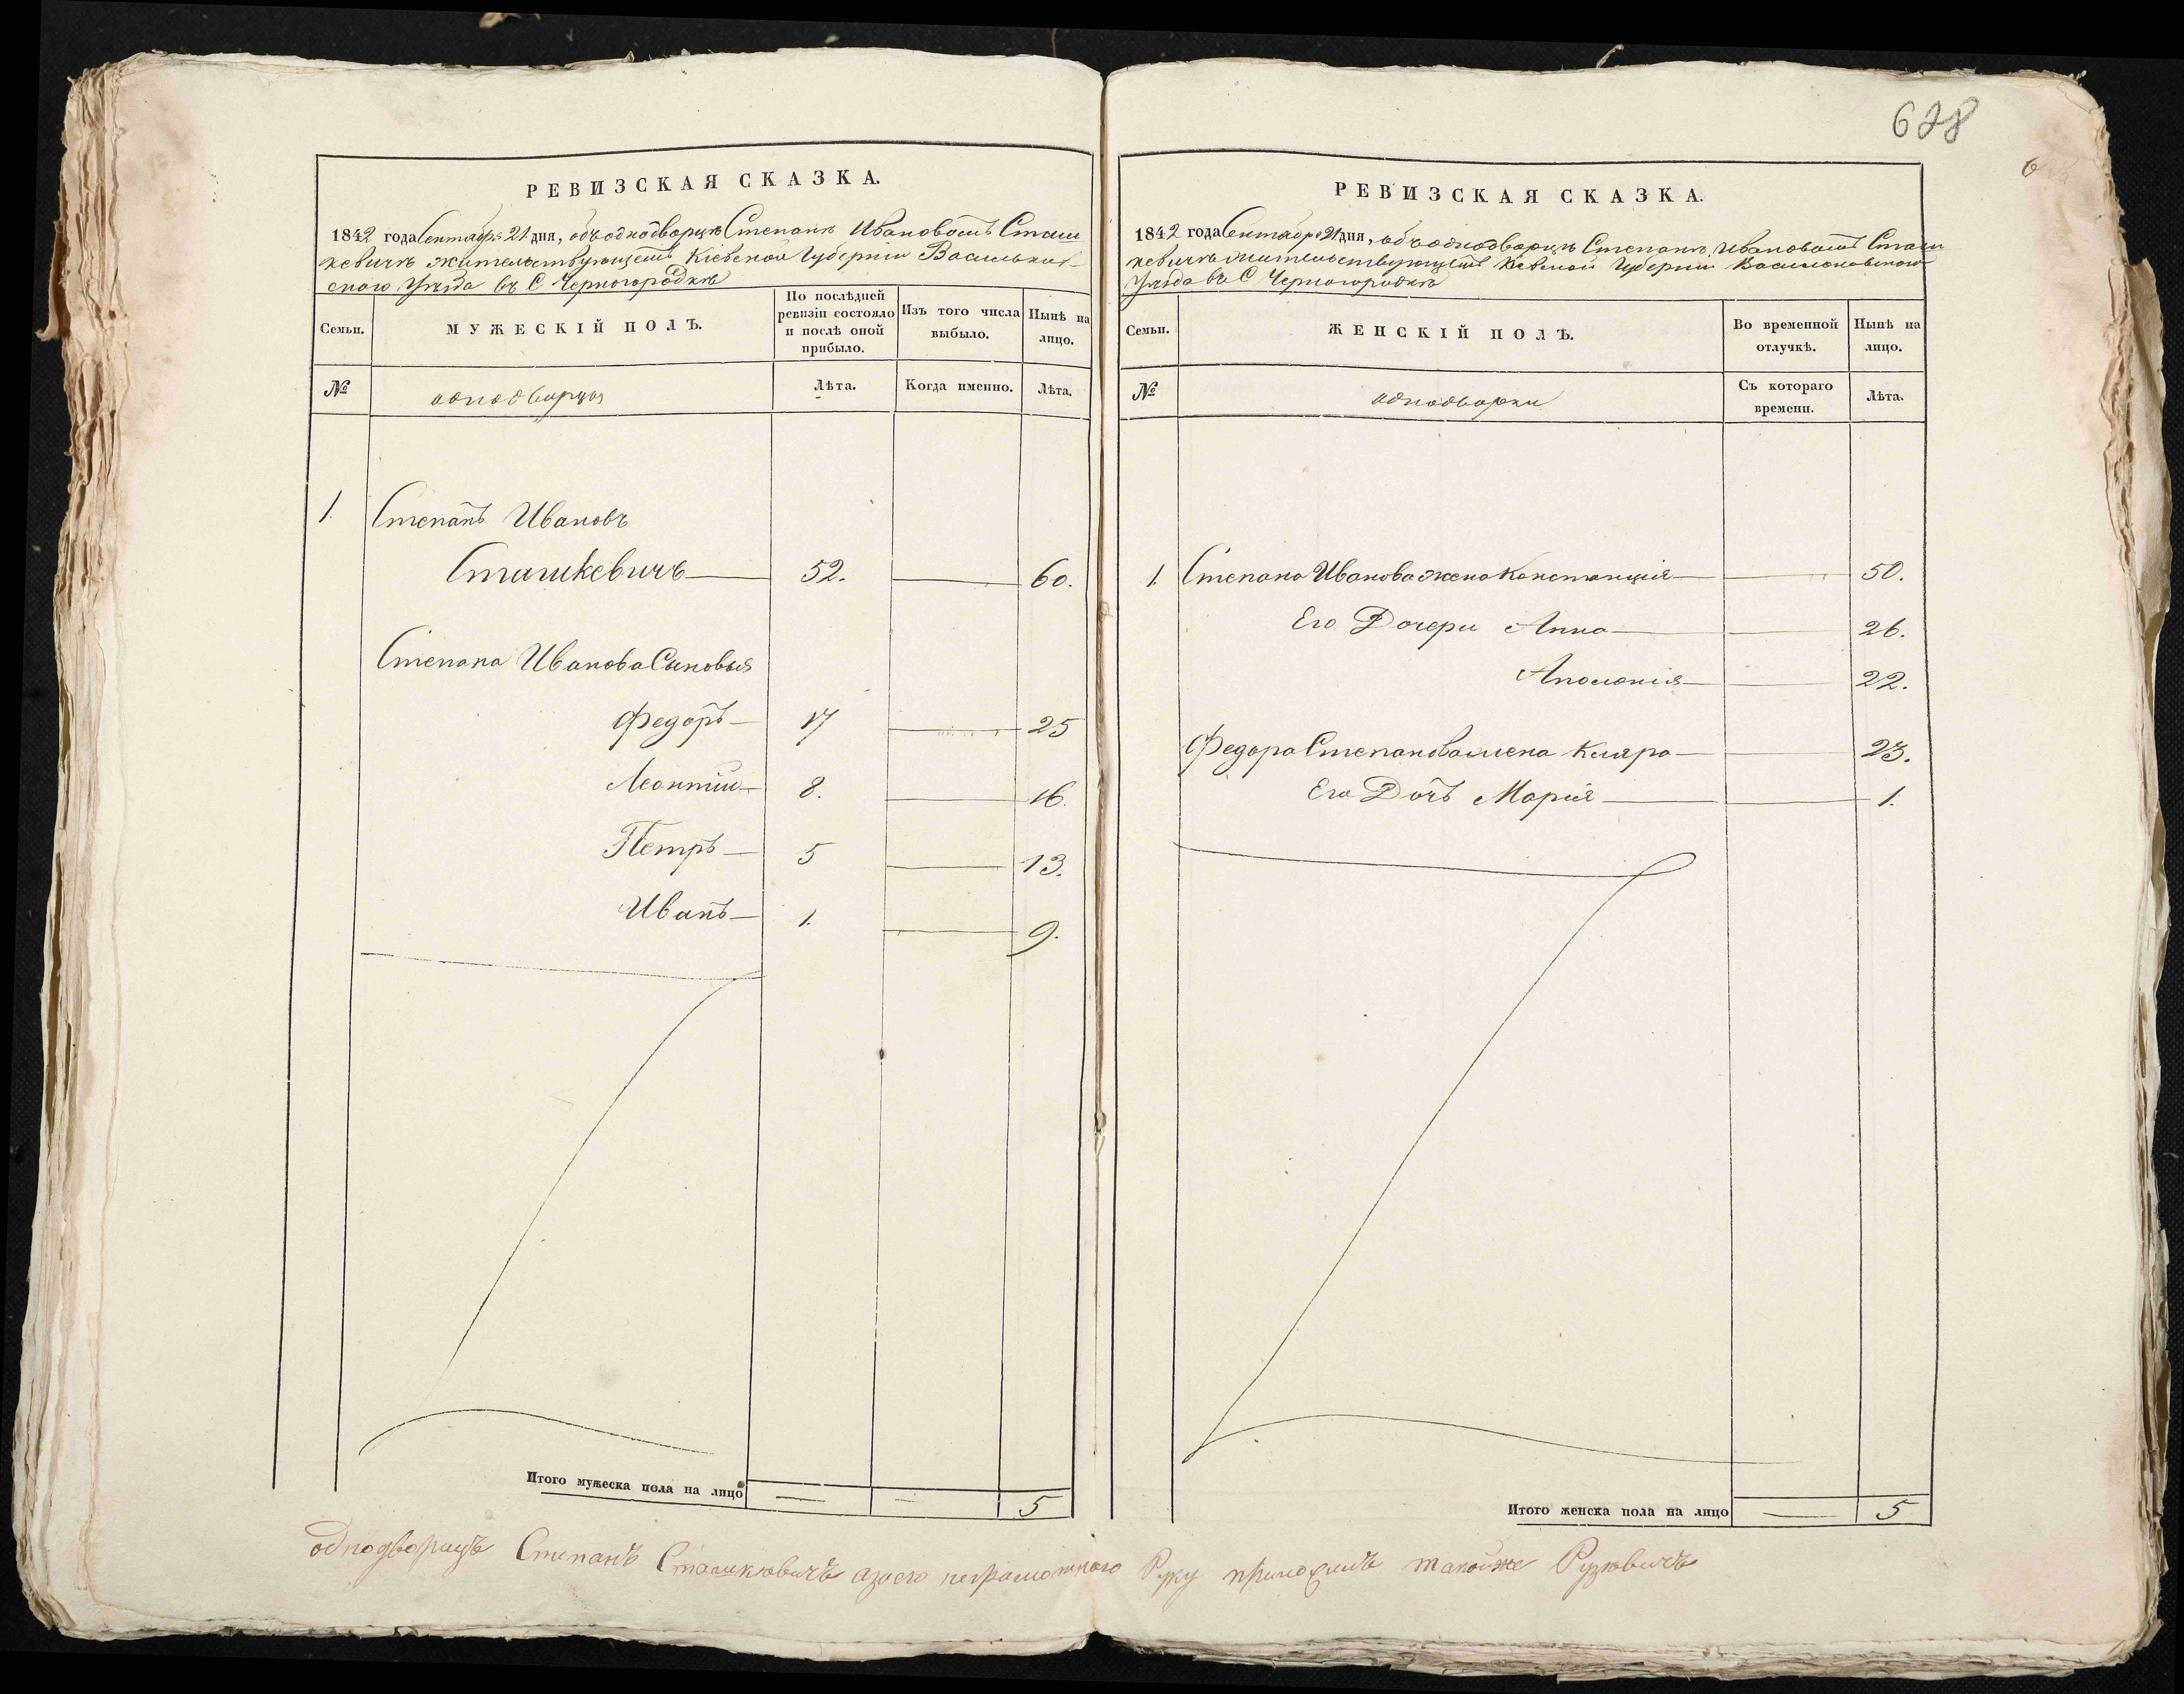 628
РЕВИЗСКАЯ СКАЗКА.
1842 года Сентября 21 дня, объ однодворцѣ Степанѣ Ивановомъ Сташ
кевичѣ жительствующемъ Кіевской Губерніи Васильков-
скаго Уѣзда въ С Черногородкѣ
Семьи.
МУЖЕСКІЙ ПОЛЪ.
По послѣдней ревизіи состояло и послѣ оной прибыло.
Изъ того числа выбыло.
Нынѣ на лицо.
№
однодворцы
Лѣта.
Когда именно.
Лѣта.
1. Степанъ Ивановъ
Сташкевичъ — 52. — 60.
Степана Иванова Сыновья
Федоръ — 17 — 25
Леонтій — 8. — 16.
Петръ — 5 — 13.
Иванъ — 1. — 9.
Итого мужеска пола на лицо — — 5
РЕВИЗСКАЯ СКАЗКА.
1842 года Сентября 21 дня, объ однодворцѣ Степанѣ Ивановомъ Сташ
кевичѣ жительствующемъ Кіевской Губерніи Васильковскаго
Уѣзда въ С Черногородкѣ
Семьи.
ЖЕНСКІЙ ПОЛЪ.
Во временной отлучкѣ.
Нынѣ на лицо.
№
однодворки
Съ котораго времени.
Лѣта.
1. Степана Иванова жена Констанція — — 50.
Его Дочери Анна — — 26.
Аполонія — — 22.
Федора Степанова жена Клара — — 23.
Его Дочь Марія — — 1.
Итого женска пола на лицо — 5
однодворецъ Степанъ Сташкювичъ азаего неграмотнаго Руку приложилъ такойже